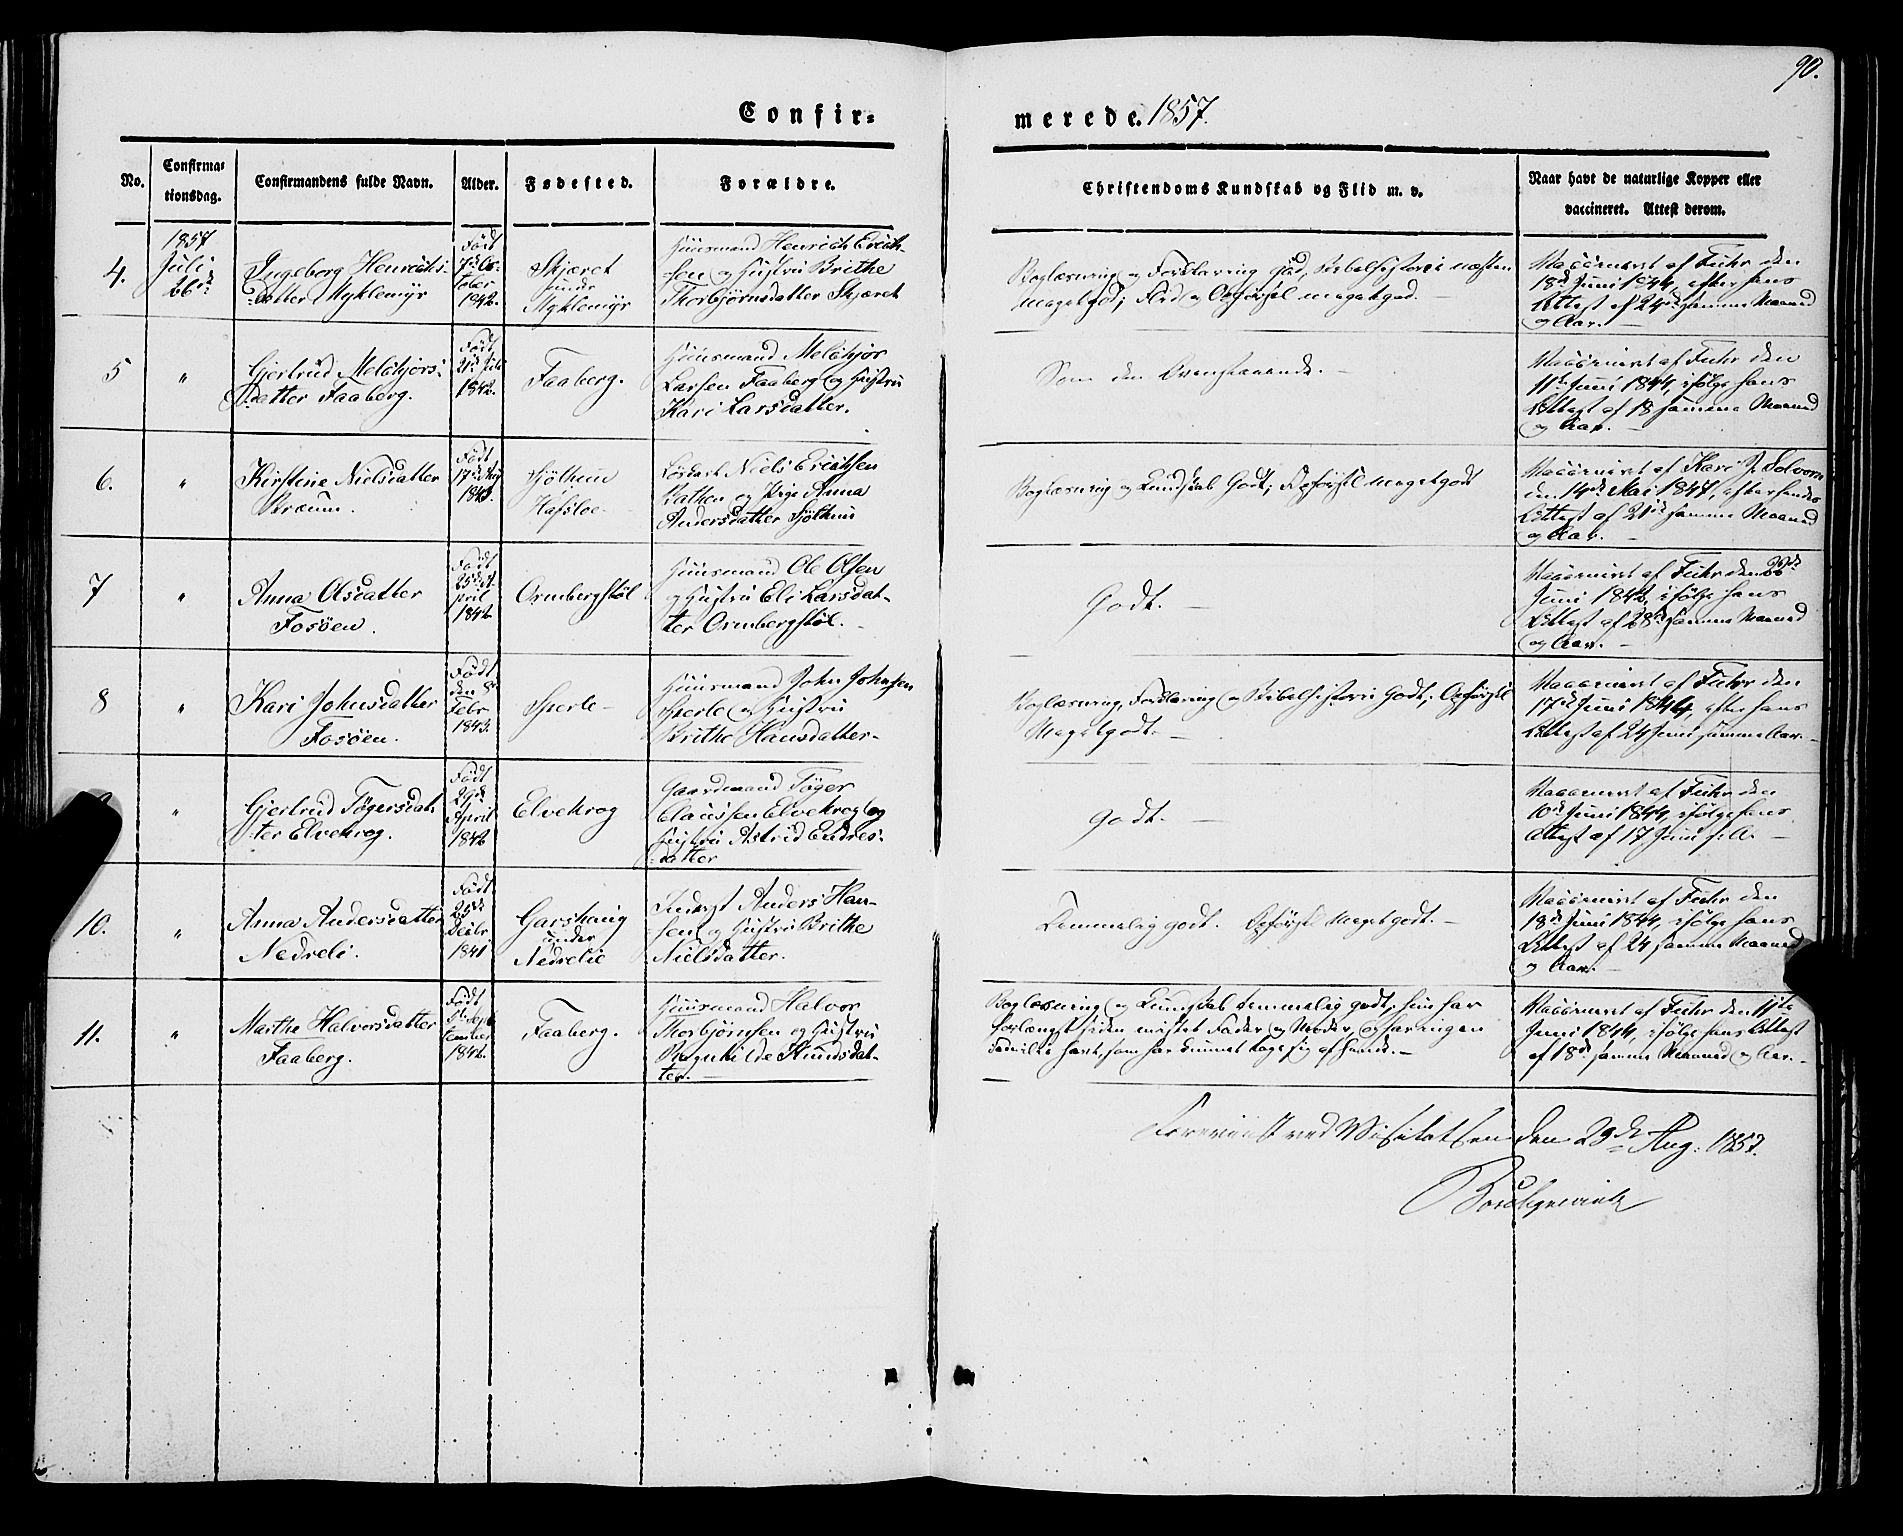 90.
Confir=
merede. 1857.
No.
Confirma=
tionsdag.
Confirmandens fulde Navn.
Alder.
Fødested.
Forældre.
Christendoms Kundskab og Flid m. v.
Naar havt de naturlige Kopper eller
vaccineret. Attest derom.
4.
1857
Juli
26de
Ingeborg Henrichs-
datter Myklemÿr
Født
7de Oc-
tober
1842.
Skjæret
under
Myklemÿr
Huusmand Henrich Erich-
sen og Hustru Brithe
Thorbjørnsdatter Skjæret
Boglæsning og Forklaring god, Bibelhistorie næsten
meget god; Flid og Opførsel meget god.
Vaccineret af Fuhr den
18de Juni 1844, efter hans
Attest af 24de samme Maaned
og Aar.
5
"
Gjertrud Melchjors-
datter Faaberg.
Født
21de Juli
1842.
Faaberg.
Huusmand Melchjor
Larsen Faaberg og Hustru
Kari Larsdatter.
Som den Ovenstaaende.
Vaccineret af Fuhr den
11te Juni 1844, ifølge hans
Attest af 18 samme Maaned
og Aar.
6.
"
Kirstine Nielsdatter
Født
17de
1843.
Hafsloe.
Niels Erichsen
og Pige Anna
Andersdatter
Boglæsning og Kundskab Godt; Opførsel Megetgodt
Vaccineret af Kari J. Solvorn
den 14de Mai 1847, efter hendes
Attest af 21de samme Maaned
og Aar.
7
"
Anna Olsdatter
Fosøen.
Født
25de A-
pril
1842
Ormbergstøl
Huusmand Ole Olsen
og Hustru Eli Larsdat-
ter Ormbergstøl.
Godt.
Vaccineret af Fuhr den
Juni 1843, ifølge hans
Attest af 28de samme Maaned
og Aar.
8
"
Kari Johnsdatter
Fosøen.
Født
den 8de
Febr
1843.
Sperle
Huusmand John Johnsen
Sperle og Hustru
Brithe Hansdatter
Boglæsning, Forklaring og Bibelhistorie Godt; Opførsel
Megetgodt.
Vaccineret af Fuhr den
17de Juni 1844, efter hans
Attest af 24 Juni samme Aar.
"
Gjertrud Tøgersdat-
ter Elvekrog.
Født
29de
April
1842
Elvekrog
Gaardmand Tøger
Claussen Elvekrog og
Hustru Astrid Endres-
datter
Godt.
Vaccineret af Fuhr den
10de Juni 1844, ifølge hans
Attest af 17 Juni s. A.
10.
"
Anna Andersdatter
Nedreli.
Født
25de
Decbr
1841
Garshaug
under
Nedrelie
Inderst Anders Han-
sen og Hustru Brithe
Nielsdatter.
Temmelig godt. Opførsel Megetgodt.
Vaccineret af Fuhr den
18de Juni 1844, ifølge hans
Attest af 24 samme Maaned
og Aar.
11.
"
Marthe Halvorsdatter
Faaberg.
Født
Sep-
tember
1842.
Faaberg.
Huusmand Halvor
Thorbjørnsen og Hustru
Ragnhilde Knudsdat-
ter.
Boglæsning og Kundskab temmelig godt, hun har
forlængst siden mistet Fader og Moder, og har ingen
som har kunnet tage sig af hende.
Vaccineret af Fuhr den 11te
Juni 1844, ifølge hans Attest
af 18de samme Maaned og Aar.
Foreviist ved Visitatsen den 29de Aug. 1857.